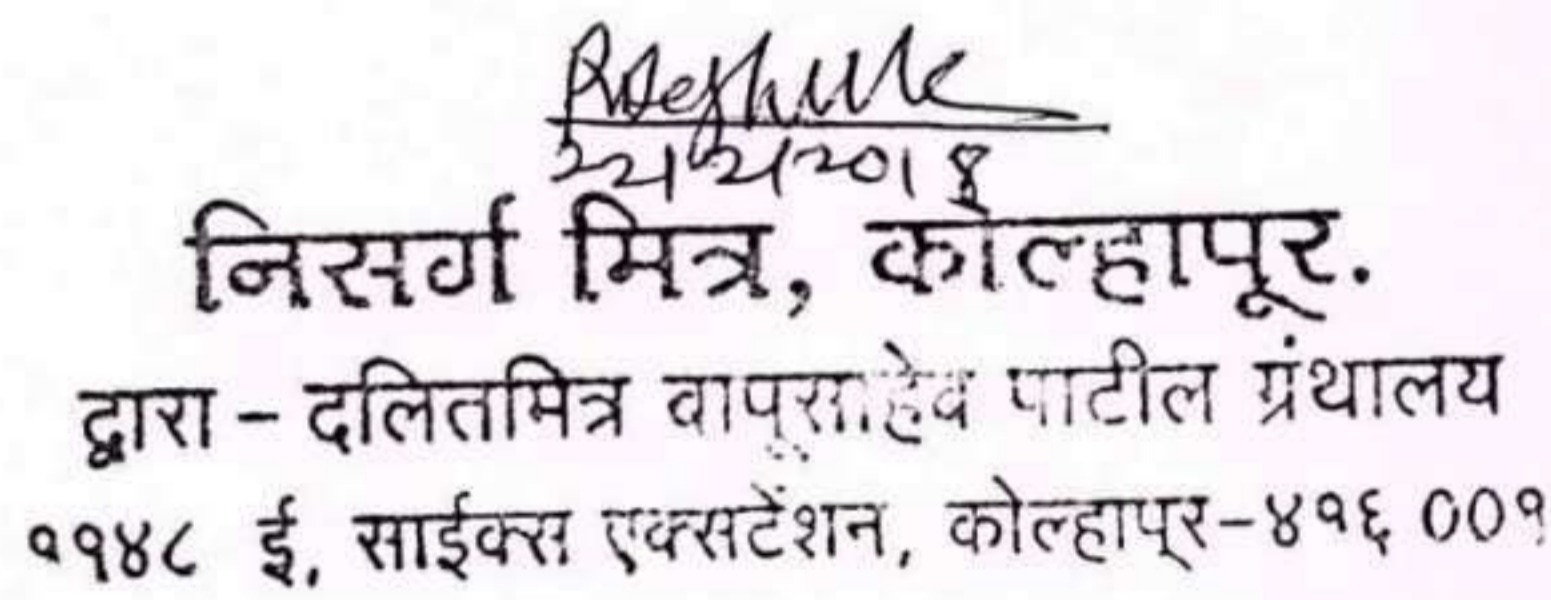 निसर्ग मित्र, कोल्हापूर.
द्वारा - दलितमित्र बापूसाहेब पाटील ग्रंथालय
११४८ ई, साईक्स एक्सटेंशन, कोल्हापूर-४१६ ००१